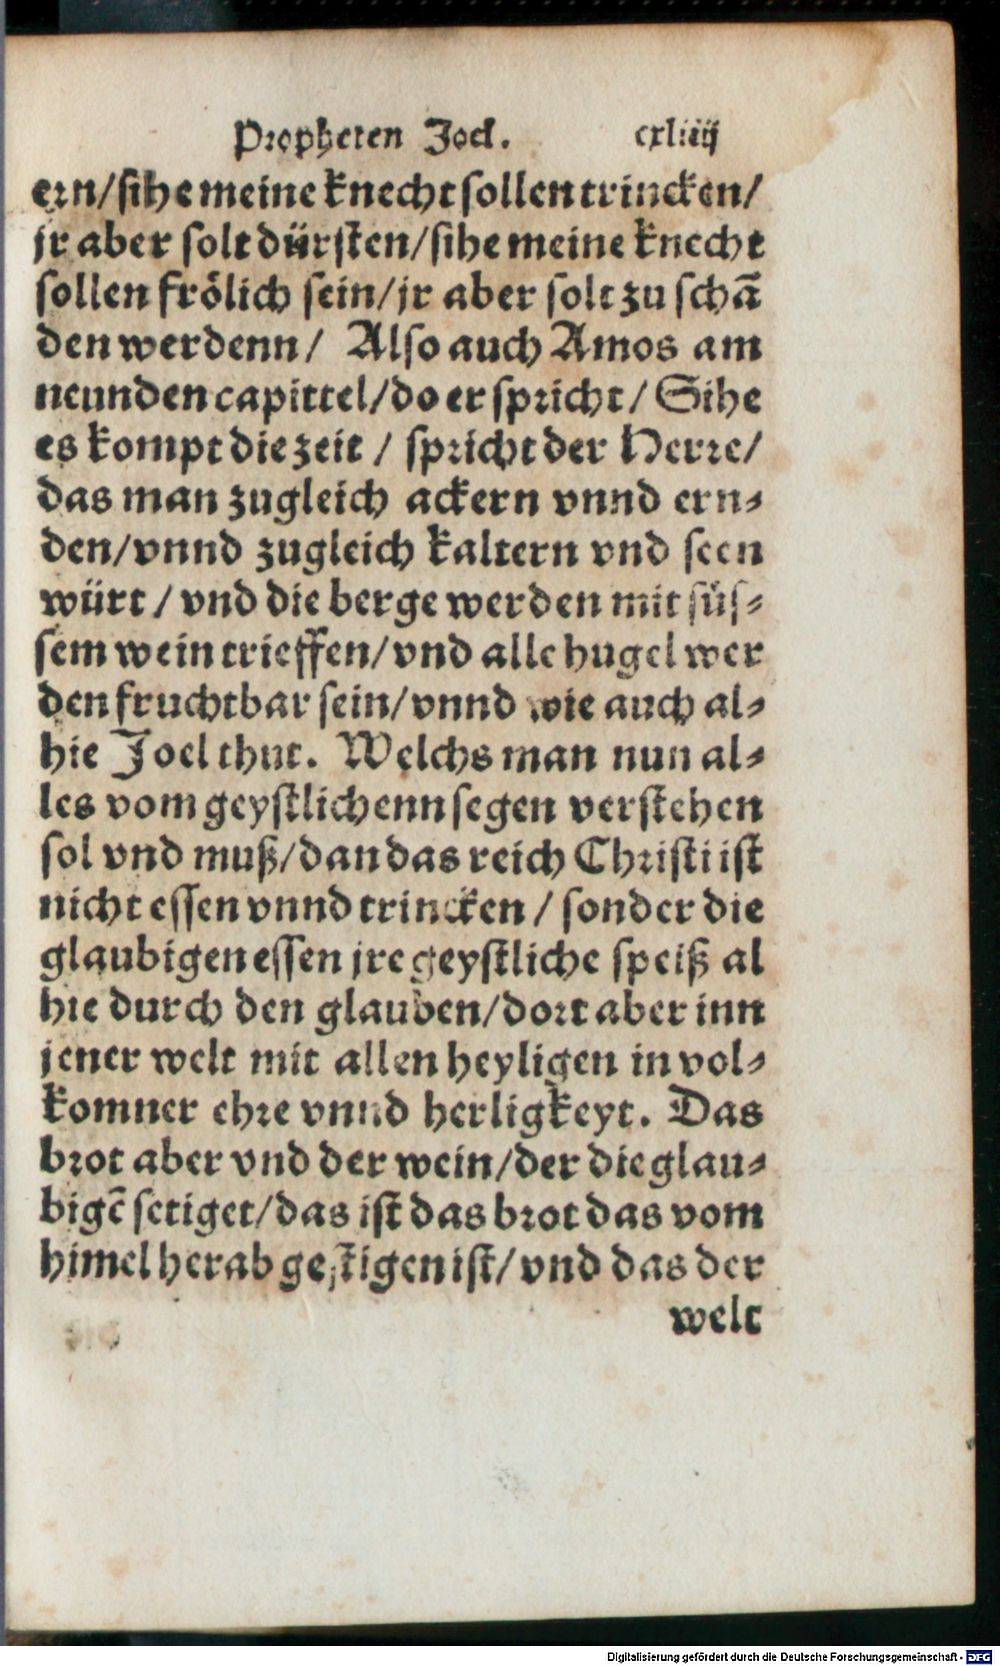 Propheten Joel. cxliiij
ern/sihe meine knecht sollen trincken/
jr aber solt dürsten/sihe meine knecht
sollen frölich sein/jr aber solt zu schā
den werdenn/ Also auch Amos am
neunden capittel/do er spricht/ Sihe
es kompt die zeit / spricht der Herre/
das man zugleich ackern vnnd ern⸗
den/vnnd zugleich kaltern vnd seen
würt / vnd die berge werden mit süs⸗
sem wein trieffen/vnd alle hugel wer
den fruchtbar sein/vnnd wie auch al⸗
hie Joel thut. Welchs man nun al⸗
les vom geystlichenn segen verstehen
sol vnd muß/dan das reich Christi ist
nicht essen vnnd trincken / sonder die
glaubigen essen jre geystliche speiß al
hie durch den glauben/dort aber inn
jener welt mit allen heyligen in vol⸗
komner ehre vnnd herligkeyt. Das
brot aber vnd der wein/der die glau⸗
bigē setiget/das ist das brot das vom
himel herab gestigen ist/vnd das der
welt
Digitalisierung gefördert durch die Deutsche Forschungsgemeinschaft - DFG